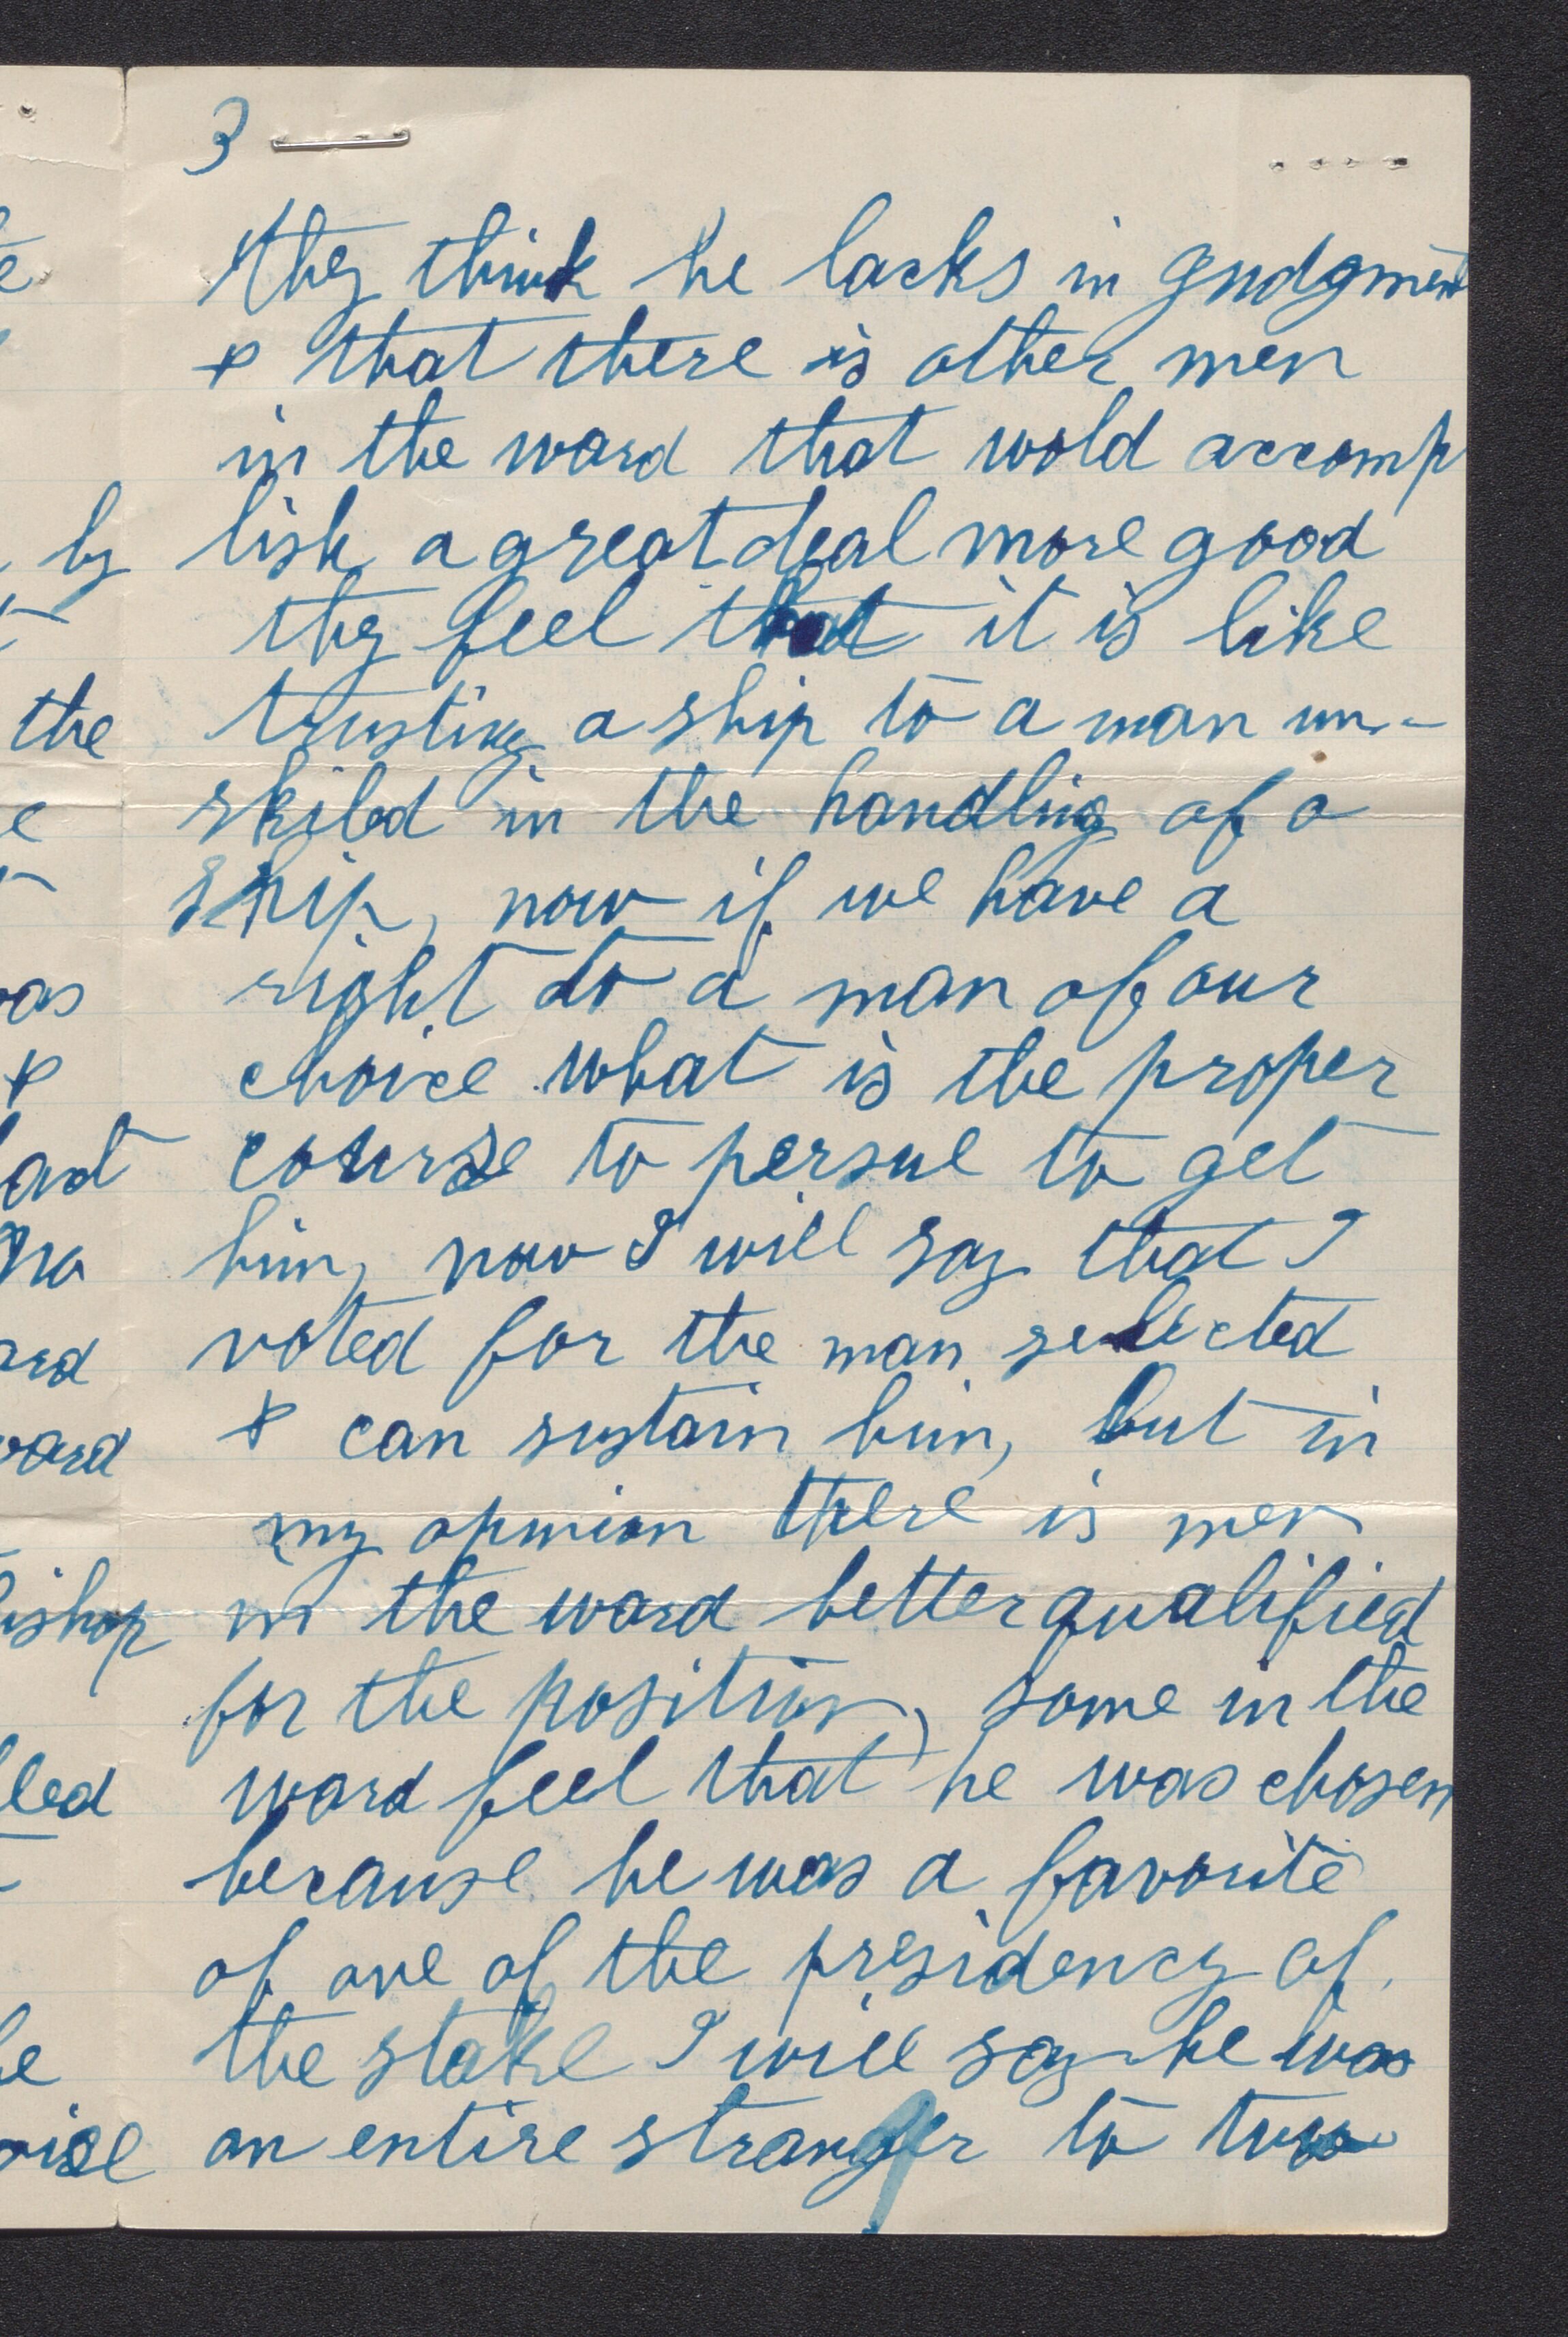 3
they think he lacks in gudgment
& that there is other men
in the ward that wold accomp
lish a great deal more good
thy feel that it is like
trusting a ship to a man un-
skiled in the handling of a
ship, now if we have a
right to a man of our
choice what is the proper
course to persue to get
him, now I will say that I
voted for the man selected
& can sustain him, but in
my opinion there is men
in the ward better qualified
for the position, some in the
ward feel that he was chosen
because he was a favorite
of one of the presidency of
the stake I will say he was
an entire stranger to two
by
the
&
bishop